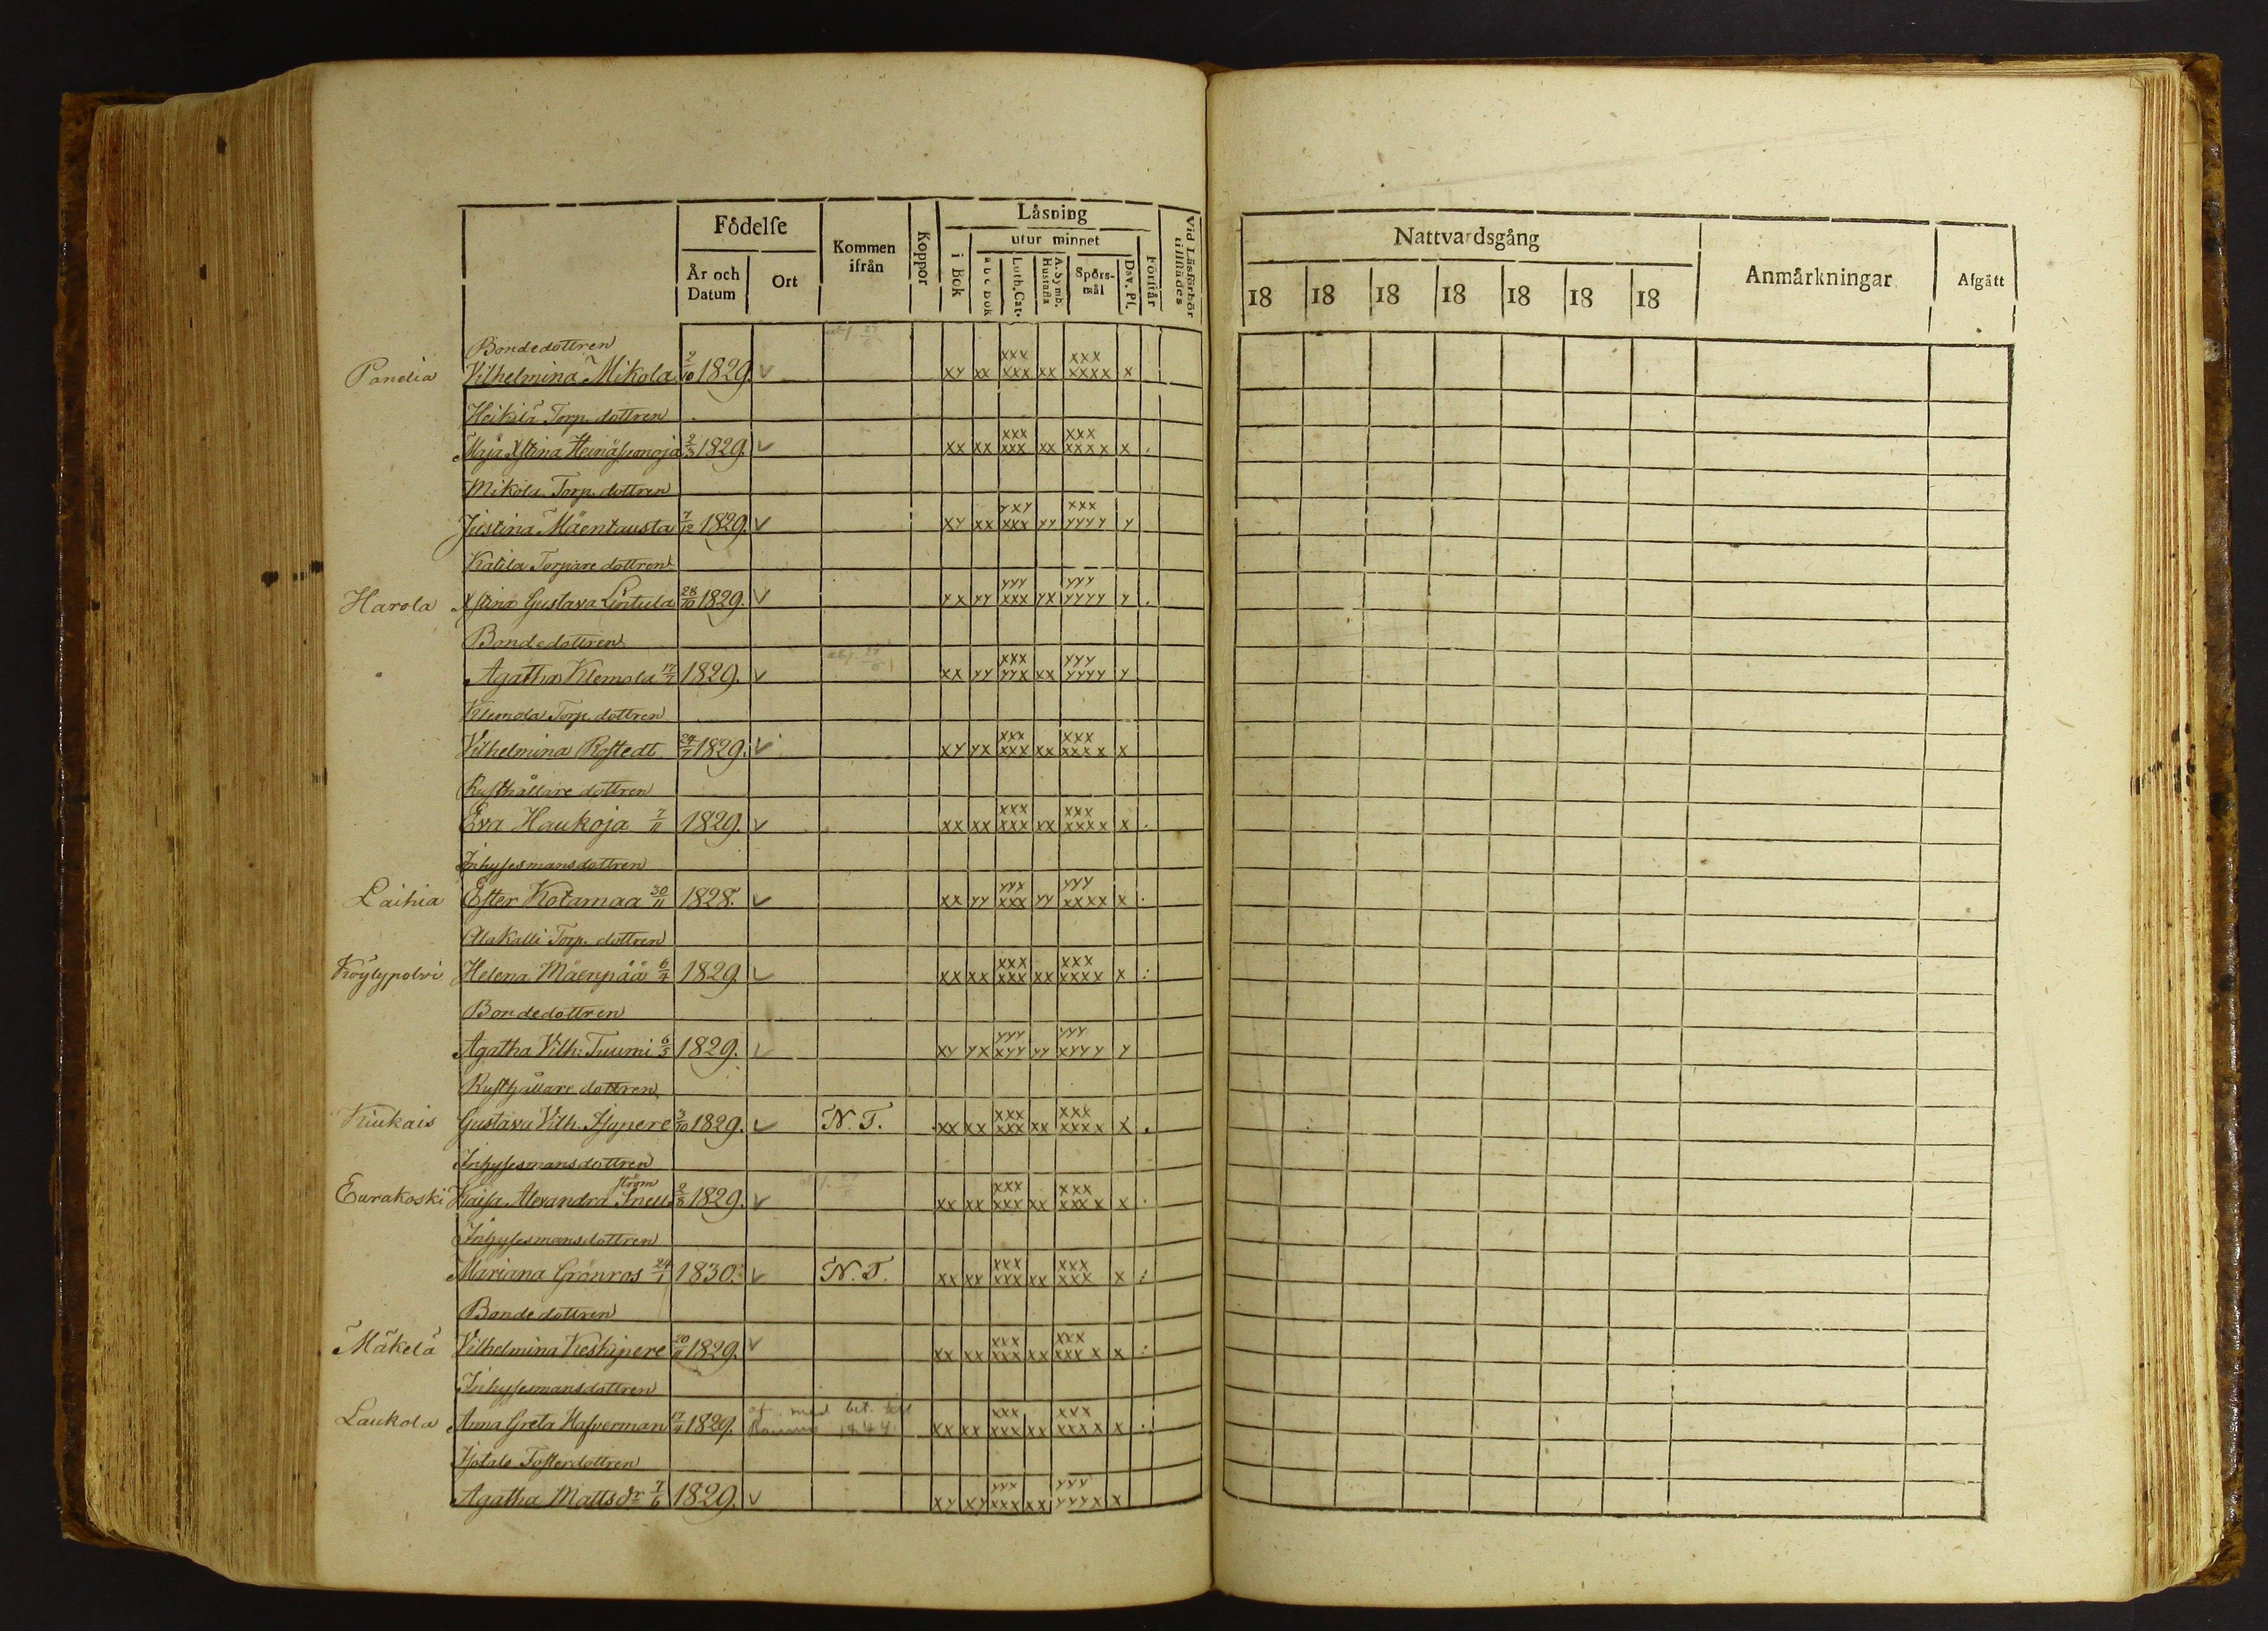 Födelse
Läsning
Kommen ifrån
Koppor
utur minnet
Vid Läsförhör tillstädes
År och Datum
Ort
i Bok
a b c Bok
Luth. Cat.
A. Symb. Hustafla
Spörsmål
Dav. Ps.
Förstår
Bondedottren
Panelia Vilhelmina Mikola 2/10 1829. v xy xx xxx xxx xx xxx xxxx x
Heikilä Torp. dottren
Maja Xstina Heinäsuonoja 2/3 1829. v xx xx xxx xxx xx xxx xxxx x
Mikola Torp. dottren
Justina Mäentausta 7/12 1829. v xy xx yxy xxx yy xxx yyyy y
Katila Torpare dottren
Harola Xstina Gustava Lintula 28/10 1829. v xx yy yyy xxx yx yyy yyyy y
Bondedottren
Agatha Klemola 17/7 1829. v xx yy xxx yyx xx yyy yyyy y
Klemola Torp. dottren
Vilhelmina Rostedt 24/7 1829. v xy yx xxx xxx xx xxx xxxx x
Rusthållare dottren
Eva Haukoja 7/11 1829. v xx xx xxx xxx xx xxx xxxx x
Inhysesmansdottren
Laihia Ester Kotamaa 30/11 1828. v xx yy yyx xxx yy yyy xxxx x
Alakalli Torp. dottren
Köylypolvi Helena Mäenpää 6/4 1829. v xx xx xxx xxx xx xxx xxxx x
Bondedottren
Agatha Vilh: Tuomi 6/5 1829. v xy yx yyy xyy yy yyy xyyy y
Rusthållare dottren
Kiukais Gustava Vilh. Isopere 3/10 1829. v N. T. xx xx xxx xxx xx xxx xxxx x
Inhysesmansdottren
ström
Eurakoski Kaisa Alexandra Snell 2/8 1829. v xx xx xxx xxx xx xxx xxxx x
Inhysesmansdottren
Mariana Grönros 24/1 1830. v N. T. xx xx xxx xxx xx xxx xxx x
Bondedottren
Mäkelä Vilhelmina Keskipere 20/11 1829. v xx xx xxx xxx xx xxx xxxx x
Inhysesmansdottren
af. med bet. till
Laukola Anna Greta Hafverman 17/4 1829. Raumo 1844. xx xx xxx xxx xx xxx xxxx x
Isotalo Fosterdottren
Agatha Mattsdr 7/6 1829. v xy xy yyy xxx xx yyy yyyx x
Nattvardsgång
Anmärkningar
Afgått
18 18 18 18 18 18 18